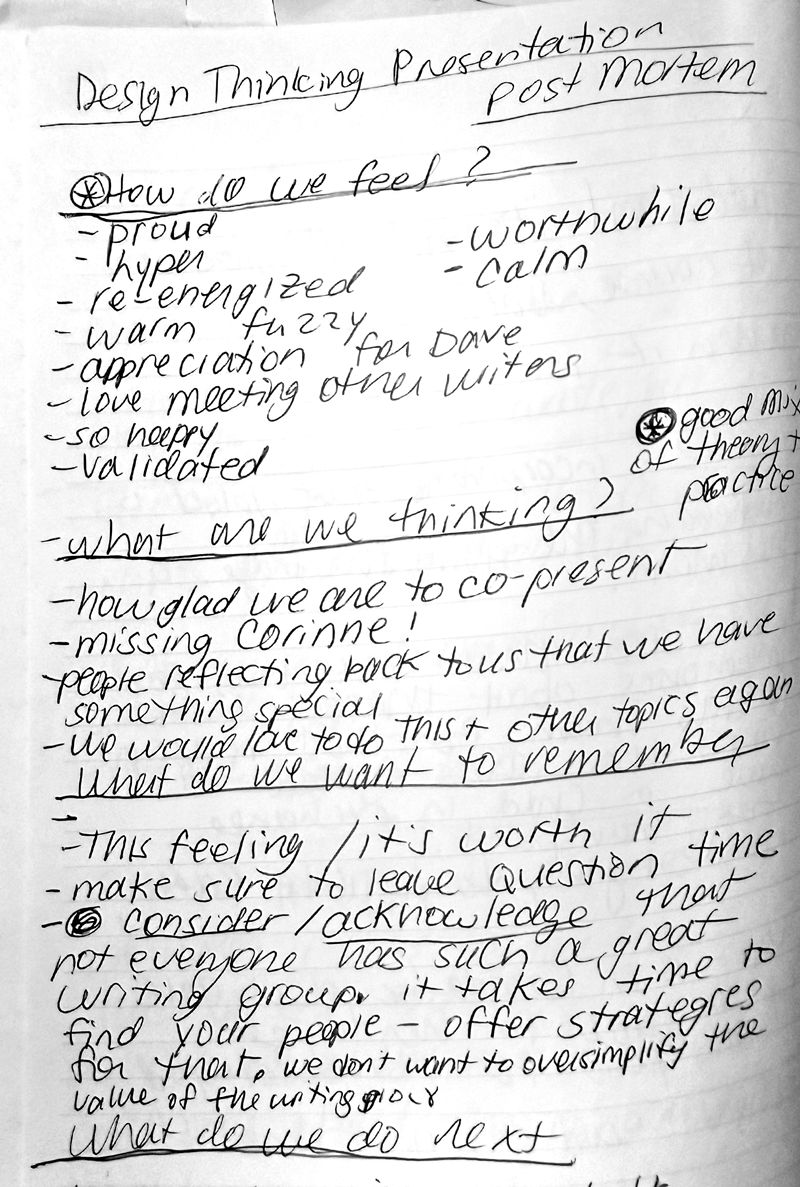 Design Thinking Presentation
post mortem
How do we feel?
- proud
- hyper
- re-energized
- warm fuzzy
- appreciation for Dave
- love meeting other writers
- so happy
- validated
- worthwhile
- calm
good mix
of theory +
practice
- what are we thinking?
- how glad we are to co-present
- missing Corinne!
- people reflecting back to us that we have
something special
- we would love to do this + other topics again
What do we want to remember
-
- This feeling / it's worth it
- make sure to leave question time
- consider / acknowledge that
not everyone has such a great
writing group. it takes time to
find your people - offer strategies
for that. we don't want to oversimplify the
value of the writing group
What do we do next